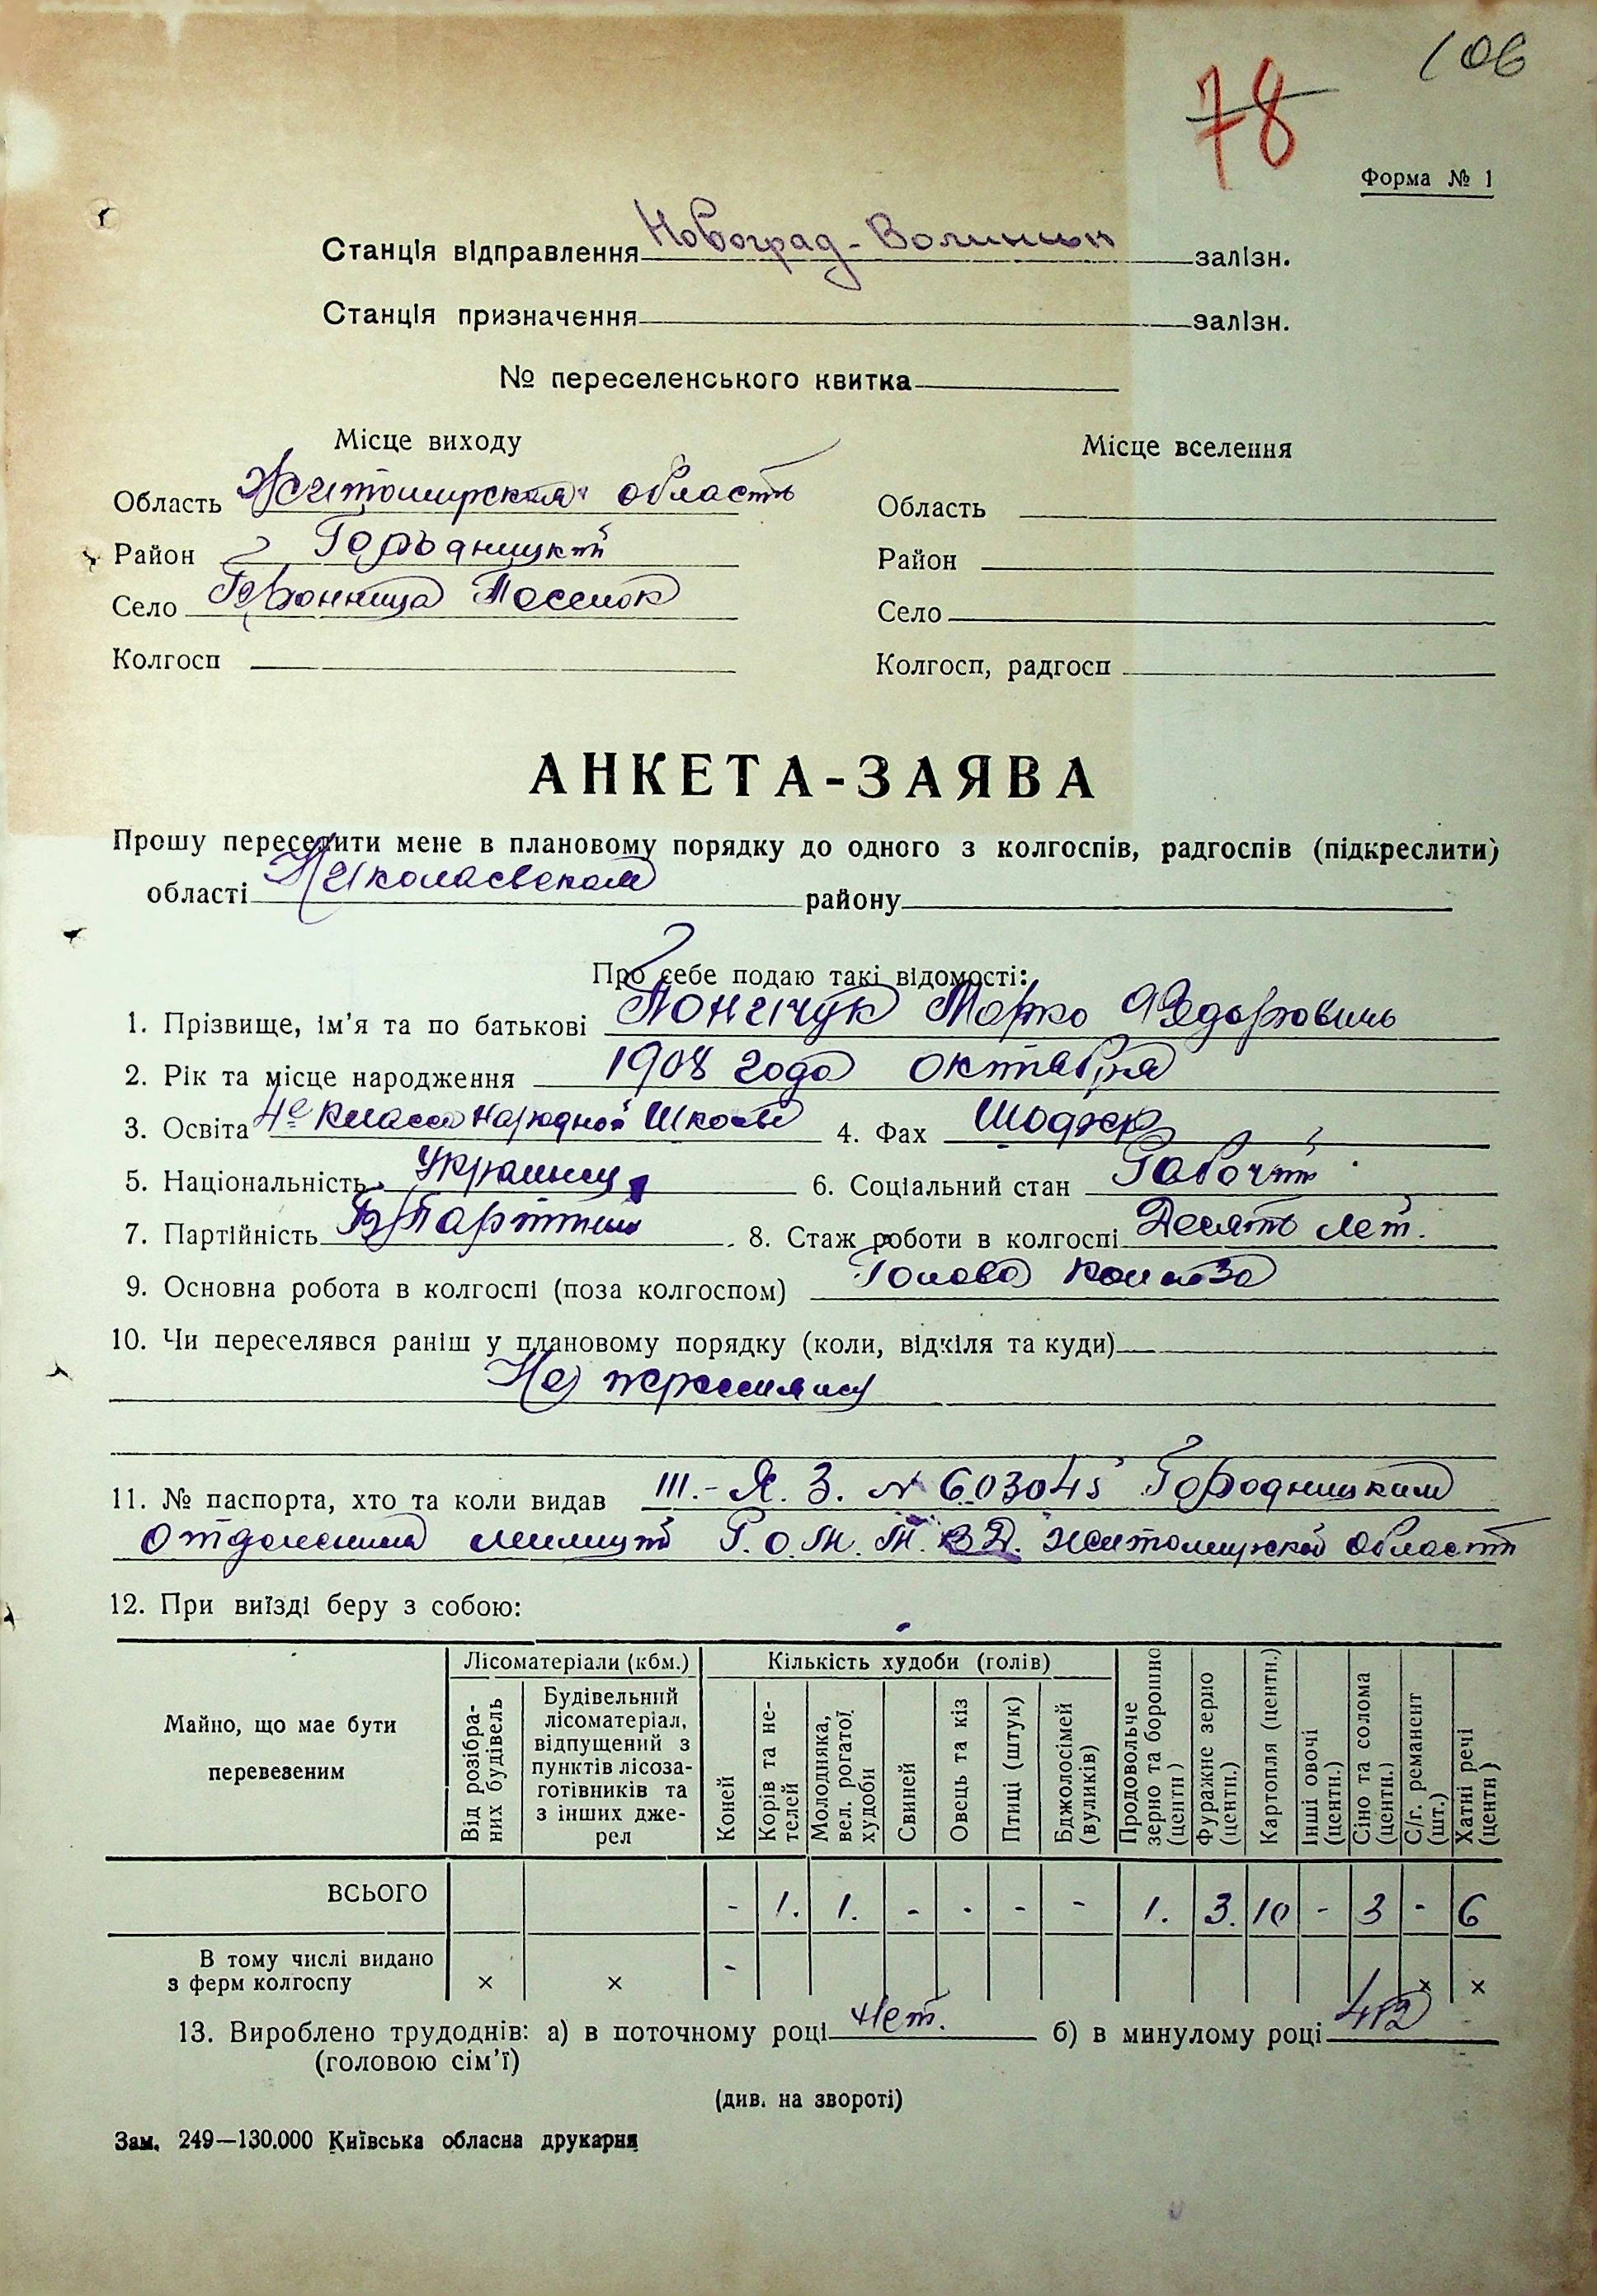 106
78
Форма № 1
Станція відправлення Новоград-Волинськ залізн.
Станція призначення залізн.
№ переселенського квитка
Місце виходу Місце вселення
Область Житомирская область Область
Район Городницкий Район
Село Посилок Село
Колгосп Колгосп, радгосп
АНКЕТА-ЗАЯВА
Прошу переселити мене в плановому порядку до одного з колгоспів, радгоспів (підкреслити)
області Николаевской району
Про себе подаю такі відомості:
1. Прізвище, ім'я та по батькові Марко Федорович
2. Рік та місце народження 1908 года октября
3. Освіта 4е класса народной школы 4. Фах
5. Національність Украинец 6. Соціальний стан Рабочий
7. Партійність Б/Партийный 8. Стаж роботи в колгоспі Десять лет.
9. Основна робота в колгоспі (поза колгоспом) Голова колхоза
10. Чи переселявся раніш у плановому порядку (коли, відкіля та куди)
Не
11. № паспорта, хто та коли видав III.-Я. З. № 603045 Городницким
Отделением милиции Житомирской области
12. При виїзді беру з собою:
Майно, що має бути перевезеним
Лісоматеріали (кбм.)
Від розібраних будівель
Будівельний лісоматеріал, відпущений з пунктів лісозаготівників та з інших джерел
Кількість худоби (голів)
Коней
Корів та нетелей
Молодняка, вел. рогатої худоби
Свиней
Овець та кіз
Птиці (штук)
Бджолосімей (вуликів)
Продовольче зерно та борошно (центн)
Фуражне зерно (центн.)
Картопля (центн.)
Інші овочі (центн.)
Сіно та солома (центн.)
С/г. реманент (шт.)
Хатні речі (центн)
ВСЬОГО - 1. 1. - - - - 1. 3. 10 - 3 - 6
В тому числі видано з ферм колгоспу × × - × ×
13. Вироблено трудоднів: а) в поточному році Нет. б) в минулому році 412
(головою сім'ї)
(див. на звороті)
Зам. 249—130.000 Київська обласна друкарня